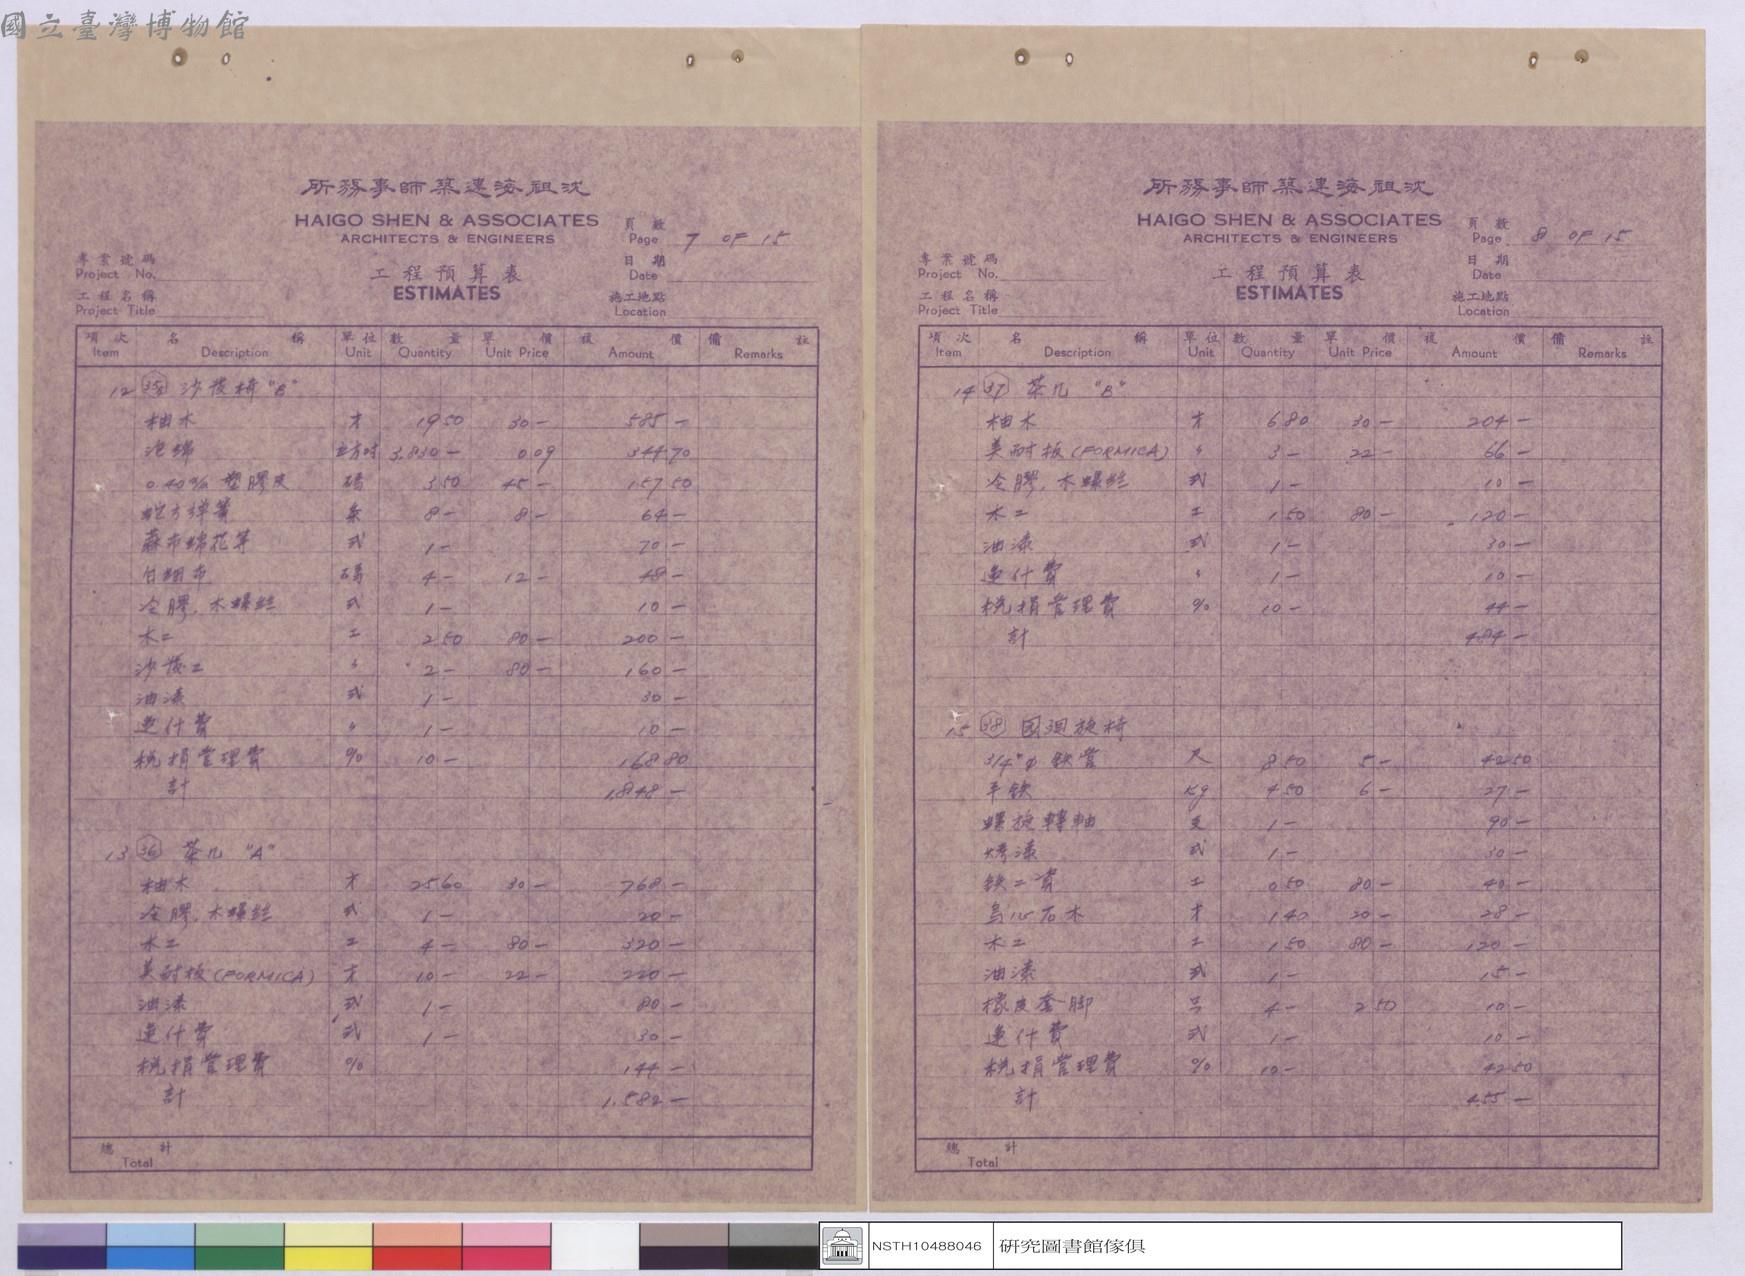 國立臺灣博物館
所務事師築建海祖沈
HAIGO SHEN & ASSOCIATES
ARCHITECTS & ENGINEERS
頁數
Page 7 OF 15
專業號碼
Project No.
工程預算表
ESTIMATES
日期
Date
工程名稱
Project Title
施工地點
Location
項次 名稱 單位 數量 單價 複價 備註
Item Description Unit Quantity Unit Price Amount Remarks
12 35 沙發椅 "B"
柚木 才 19 50 30 — 585 —
泡綿 立方吋 3,830 — 0 09 344 70
0.40 m/m 塑膠皮 碼 3 50 45 — 157 50
蛇方彈簧 条 8 — 8 — 64 —
蔴布綿花等 式 1 — 70 —
白細布 碼 4 — 12 — 48 —
冷膠.木螺絲 式 1 — 10 —
木工 工 2 50 80 — 200 —
沙發工 〃 2 — 80 — 160 —
油漆 式 1 — 30 —
運什費 〃 1 — 10 —
稅捐管理費 % 10 — 168 80
計 1,848 —
13 36 茶几 "A"
柚木 才 25 60 30 — 768 —
冷膠.木螺絲 式 1 — 20 —
木工 工 4 — 80 — 320 —
美耐板(FORMICA) 才 10 — 22 — 220 —
油漆 式 1 — 80 —
運什費 式 1 — 30 —
稅捐管理費 % 144 —
計 1,582 —
總計
Total
所務事師築建海祖沈
HAIGO SHEN & ASSOCIATES
ARCHITECTS & ENGINEERS
頁數
Page 8 OF 15
專業號碼
Project No.
工程預算表
ESTIMATES
日期
Date
工程名稱
Project Title
施工地點
Location
項次 名稱 單位 數量 單價 複價 備註
Item Description Unit Quantity Unit Price Amount Remarks
14 37 茶几 "B"
柚木 才 6 80 30 — 204 —
美耐板(FORMICA) 〃 3 — 22 — 66 —
冷膠.木螺絲 式 1 — 10 —
木工 工 1 50 80 — 120 —
油漆 式 1 — 30 —
運什費 〃 1 — 10 —
稅捐管理費 % 10 — 44 —
計 484 —
15 38 圓迴旋椅
3/4"φ 鉄管 尺 8 50 5 — 42 50
平鉄 kg 4 50 6 — 27 —
螺旋轉軸 支 1 — 90 —
烤漆 式 1 — 30 —
鉄工資 工 0 50 80 — 40 —
烏心石木 才 1 40 20 — 28 —
木工 工 1 50 80 — 120 —
油漆 式 1 — 15 —
橡皮套脚 4 — 2 50 10 —
運什費 式 1 — 10 —
稅捐管理費 % 10 — 42 50
計 455 —
總計
Total
NSTH10488046 研究圖書館傢俱